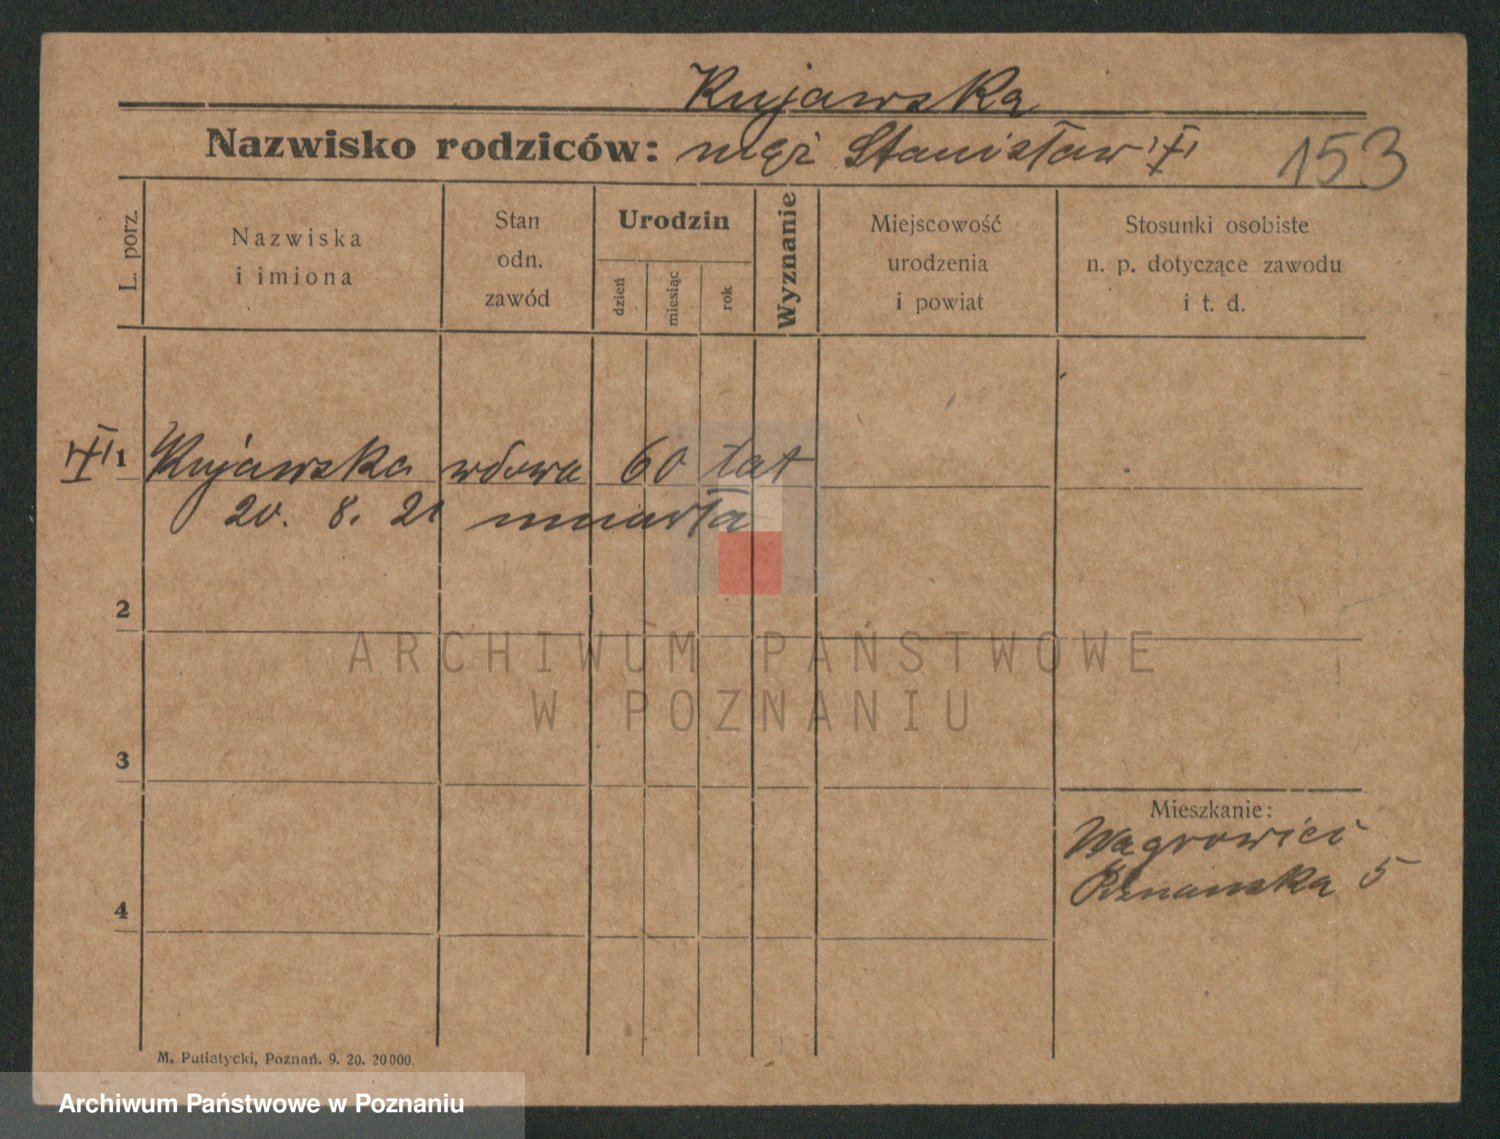 Kujawska
Nazwisko rodziców: mąż Stanisław
153
L. porz.
Nazwiska
i imiona
Stan
odn.
zawód
Urodzin
dzień
miesiąc
rok
Wyznanie
Miejscowość
urodzenia
i powiat
Stosunki osobiste
n. p. dotyczące zawodu
i t. d.
1 Kujawska wdowa 60 lat
20. 8. 21 umarła
2
3
4
Mieszkanie:
Wągrowiec
5
M. Putiatycki, Poznań. 9. 20. 20000.
ARCHIWUM PAŃSTWOWE
W POZNANIU
Archiwum Państwowe w Poznaniu